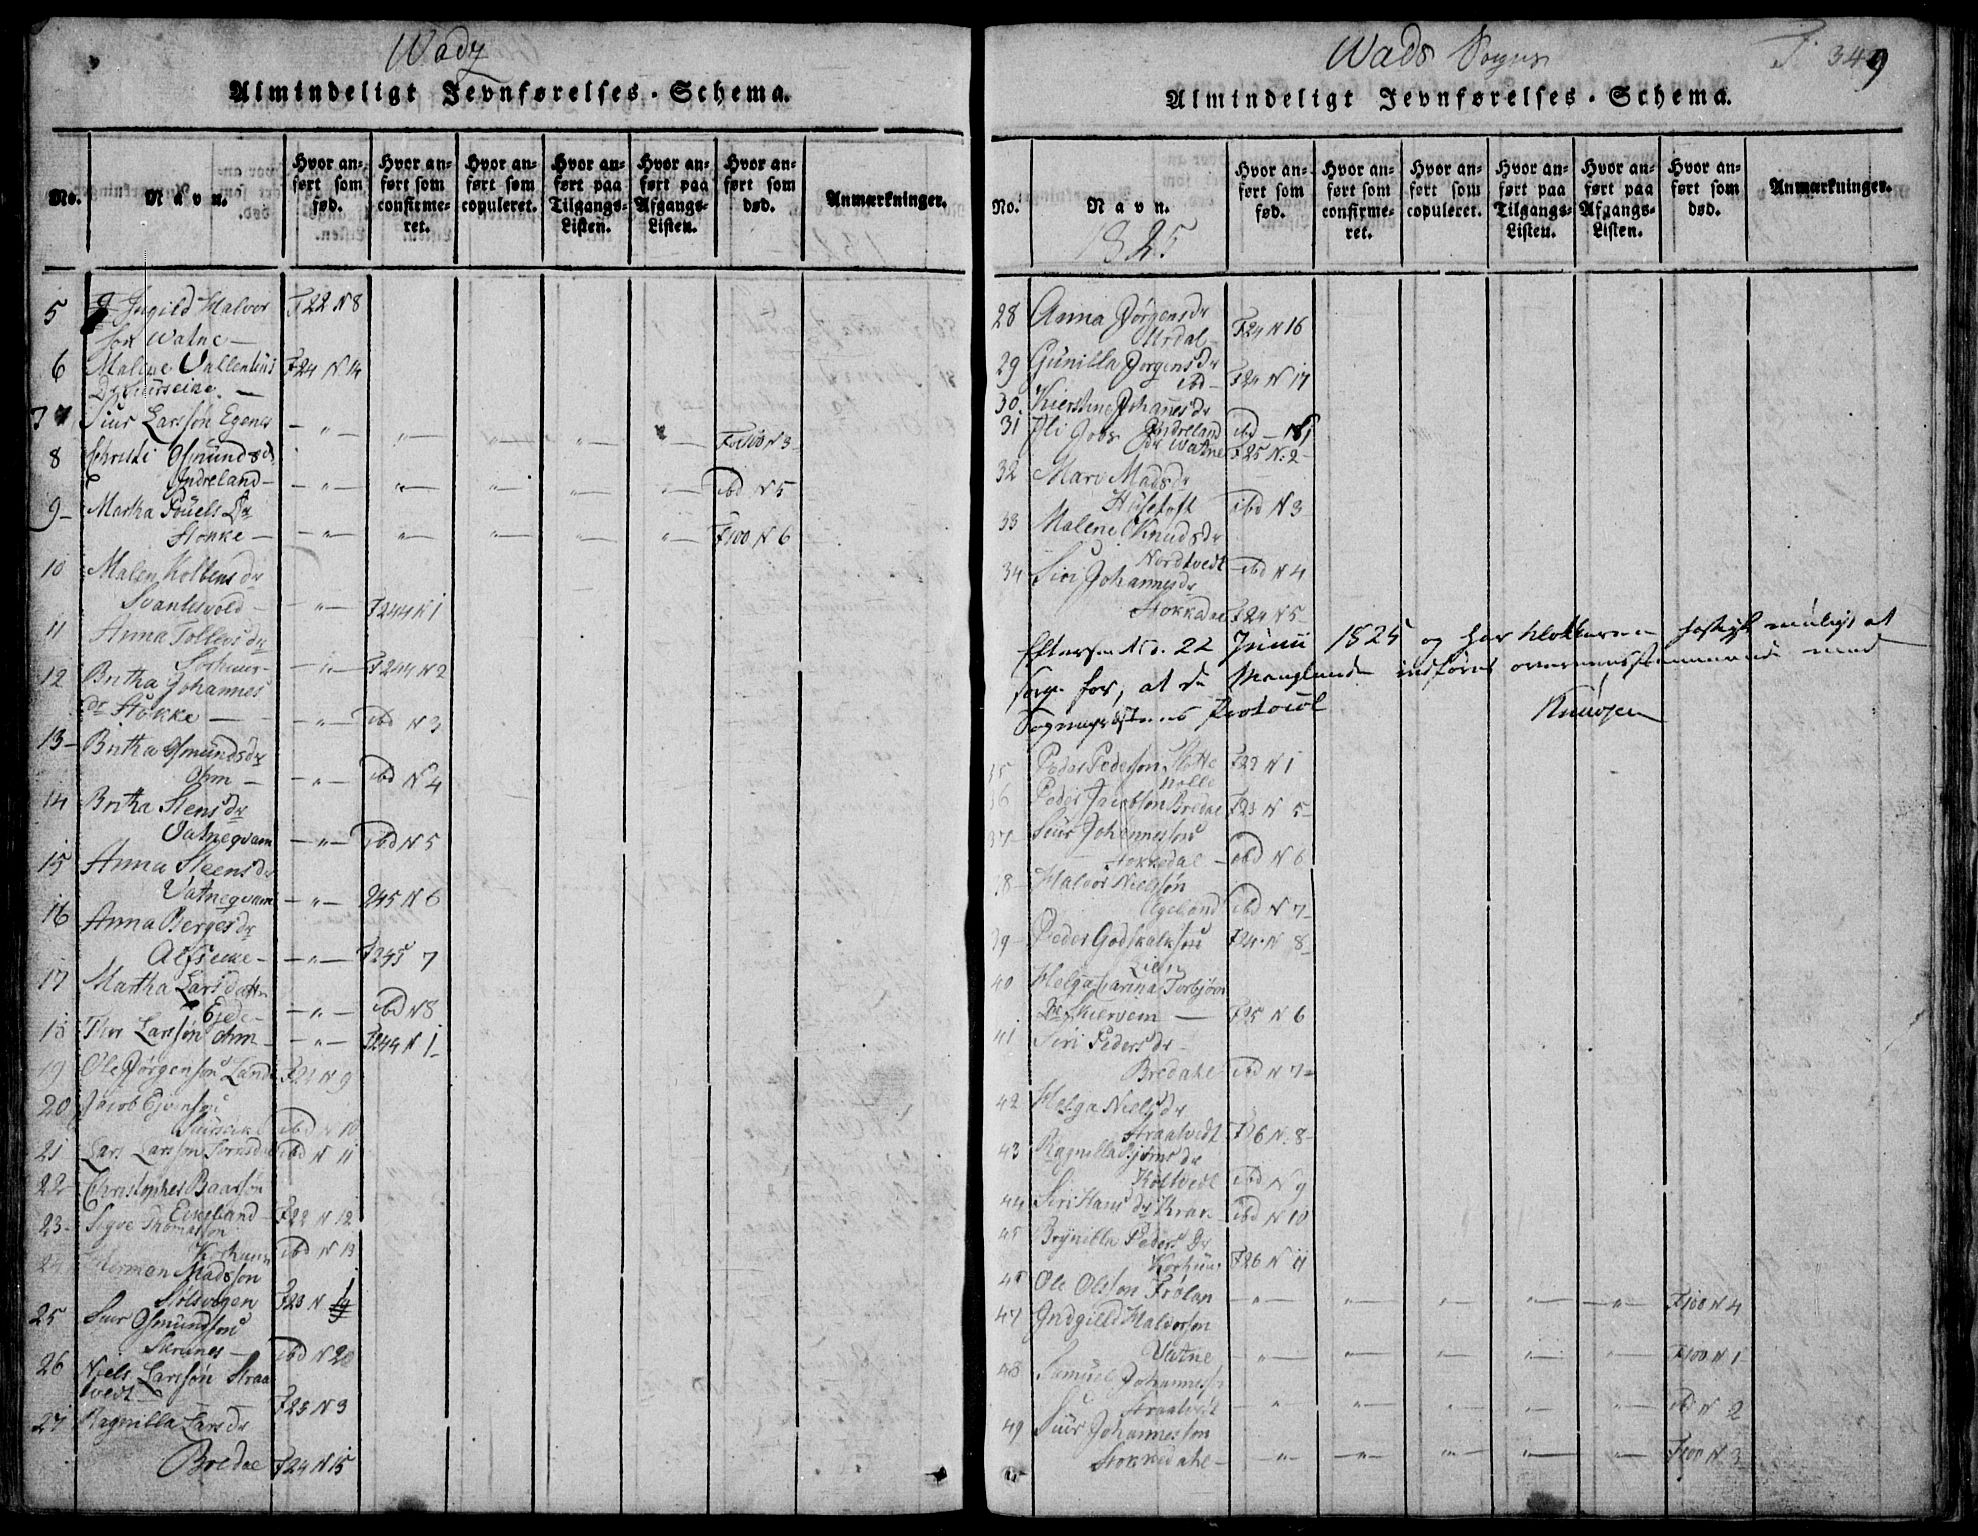 Wady
Almindeligt Jevnførelses-Schema.
No.
Navn.
Hvor anført som fød.
Hvor anført som confirmeret.
Hvor anført som copuleret.
Hvor anført paa Tilgangs-Listen.
Hvor anført paa Afgangs-Listen.
Hvor anført som død.
Anmærkninger.
5 Ingild Halvor F22 N 8
søn Watne —
6 Malene Vallentins F24 N 14
Dr
7 Siur Larssøn Egenes — " — " — " — " — " F100 N 3
8 Christi Osmundsdr
Indreland — " — " — " — " — " ibd N 5
9 Martha Pouels Dr
Stokke — " — " — " — " — " F100 N 6
10 Malen Kolbens dr
Svantesvold — " — F244 N 1
11 Anna Tollevs dr
— " — F244 N 2
12 Britha Johannes
dr Stokke — " — ibd N 3
13 Britha Osmundsdr
Ohm — " — ibd N 4
14 Britha Stens dr
Vatneqvam — " — ibd N 5
15 Anna Steens dr
Vatneqvam — " — 245 N 6
16 Anna Berges dr
Alfseike — " — F245 7
17 Martha Lars datter
Eide — " — ibd N 8
18 Thor Larssøn Ohm — " — F244 N 1
19 Ole Jørgensøn Lande F21 N 9
20 Jacob
ibd N 10
21 Lars Larssøn ibd N 11
22 Christopher Baarsøn
Eikeland F22 N 12
23 Sigve Thomassøn
ibd N 13
24 Herman Madssøn
Stølsvigen F23 N 1
25 Siur Osmundsøn
Skrunes — ibd N 20
26 Niels Larssøn Straa
tvedt F23 N 3
27 Ragnilla Lars dr
Bredal F24 N 15
Wads Sogns
F: 349
Almindeligt Jevnførelses-Schema.
No.
Navn.
Hvor anført som fød.
Hvor anført som confirmeret.
Hvor anført som copuleret.
Hvor anført paa Tilgangs-Listen.
Hvor anført paa Afgangs-Listen.
Hvor anført som død.
Anmærkninger.
1825
28 Anna Jørgensdr
Ardal F24 N 16
29 Gunilla Jørgensdr
ibd — F24 N 17
30 Kierstine Johanesdr
Indreland ibd
31 Watne F25 N. 2
32 Mari Madsdr
Husetoft ibd N 3
33 Malene Knudsdr
Nordtvedt ibd N 4
34 Siri Johannesdr
Stokkedal F24 N 5
Efterseet d. 22 Junii 1825 og har Klokkeren at
sørge for, at de Manglende indføres overeensstemmende med
Sognepræstens Protocol
35 Peder Pedersøn F23 N 1
36 Peder Jacobsøn Bredal F23 N 5
37 Siur Johannessøn
Stokkedal — ibd N 6
38 Halvor Nielsøn
Egeland ibd N 7
39 Peder Godskalksøn F24 N 8
Lien
40 Helga Carina Torbjørn
Dr Skiervem — F25 N 6
41 Siri Peders dr
Bredahl ibd N 7
42 Helga Niels dr
Straatvedt F26 N. 8
43 Ragnilla Bjørns dr
ibd N 9
44 Siri Hans dr ibd N 10
45 Brynilla Peders Dr
F26 N 11
46 Ole Olssøn Frølan — " — " — " — " — " F100 N 4
47 Indgield Halvorsøn
Vatne — " — " — " — " — " F100 N 1
48 Samuel Johannes
Straatvet — " — " — " — " — " ibd N 2
49 Siur Johannessøn
Stokkedahl — " — " — " — " — " F100 N 3